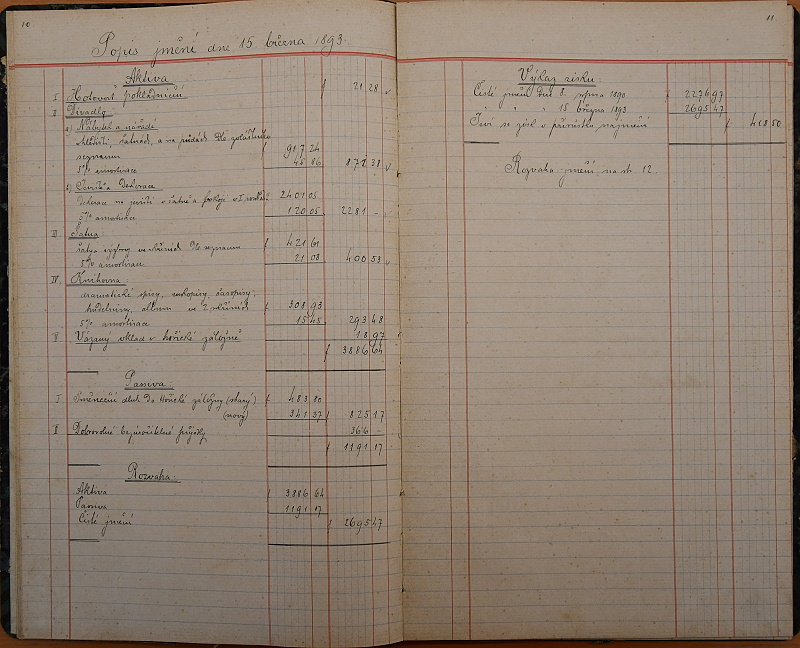 10
Popis jmění dne 15. března 1893.
Aktiva
I Hotovost pokladniční f 21 28
II Divadlo
a) Nábytek a nářadí
v šatnách, a na půdách dle
seznamu f 917 24
5% amortisace 45 86 871 38
b) Jeviště a Dekorace
Dekorace na jevišti v šatně a pokoji v I 2401 05
5% amortisace 120 05 2281 -
III Šatna
dle seznamu f 421 61
5% amortisace 21 08 400 53
IV Knihovna:
dramatické spisy, rukopisy, časopisy,
hudebniny, album ve 2 skříních f 308 93
5% amortisace 15 45 293 48
V Vázaný vklad v hořické záložně 18 97
f 3886 64
Passiva
I Směneční dluh do Hořické záložny (starý) f 483 80
(nový) 341 37 f 825 17
II Dobrovolné bezúročitelné půjčky 366 -
f 1191 17
Rozvaha.
Aktiva f 3886 64
Passiva 1191 17
Čisté jmění f 2695 47
11
Výkaz zisku:
Čisté jmění dne 8. srpna 1890 f 2276 97
" " " 15 března 1893 2695 47
Jeví se zisk v přírůstku na jmění f 418 50
Rozvaha jmění na str. 12.